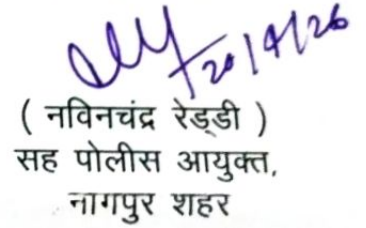 20/4/26
( नविनचंद्र रेड्डी )
सह पोलीस आयुक्त,
नागपुर शहर